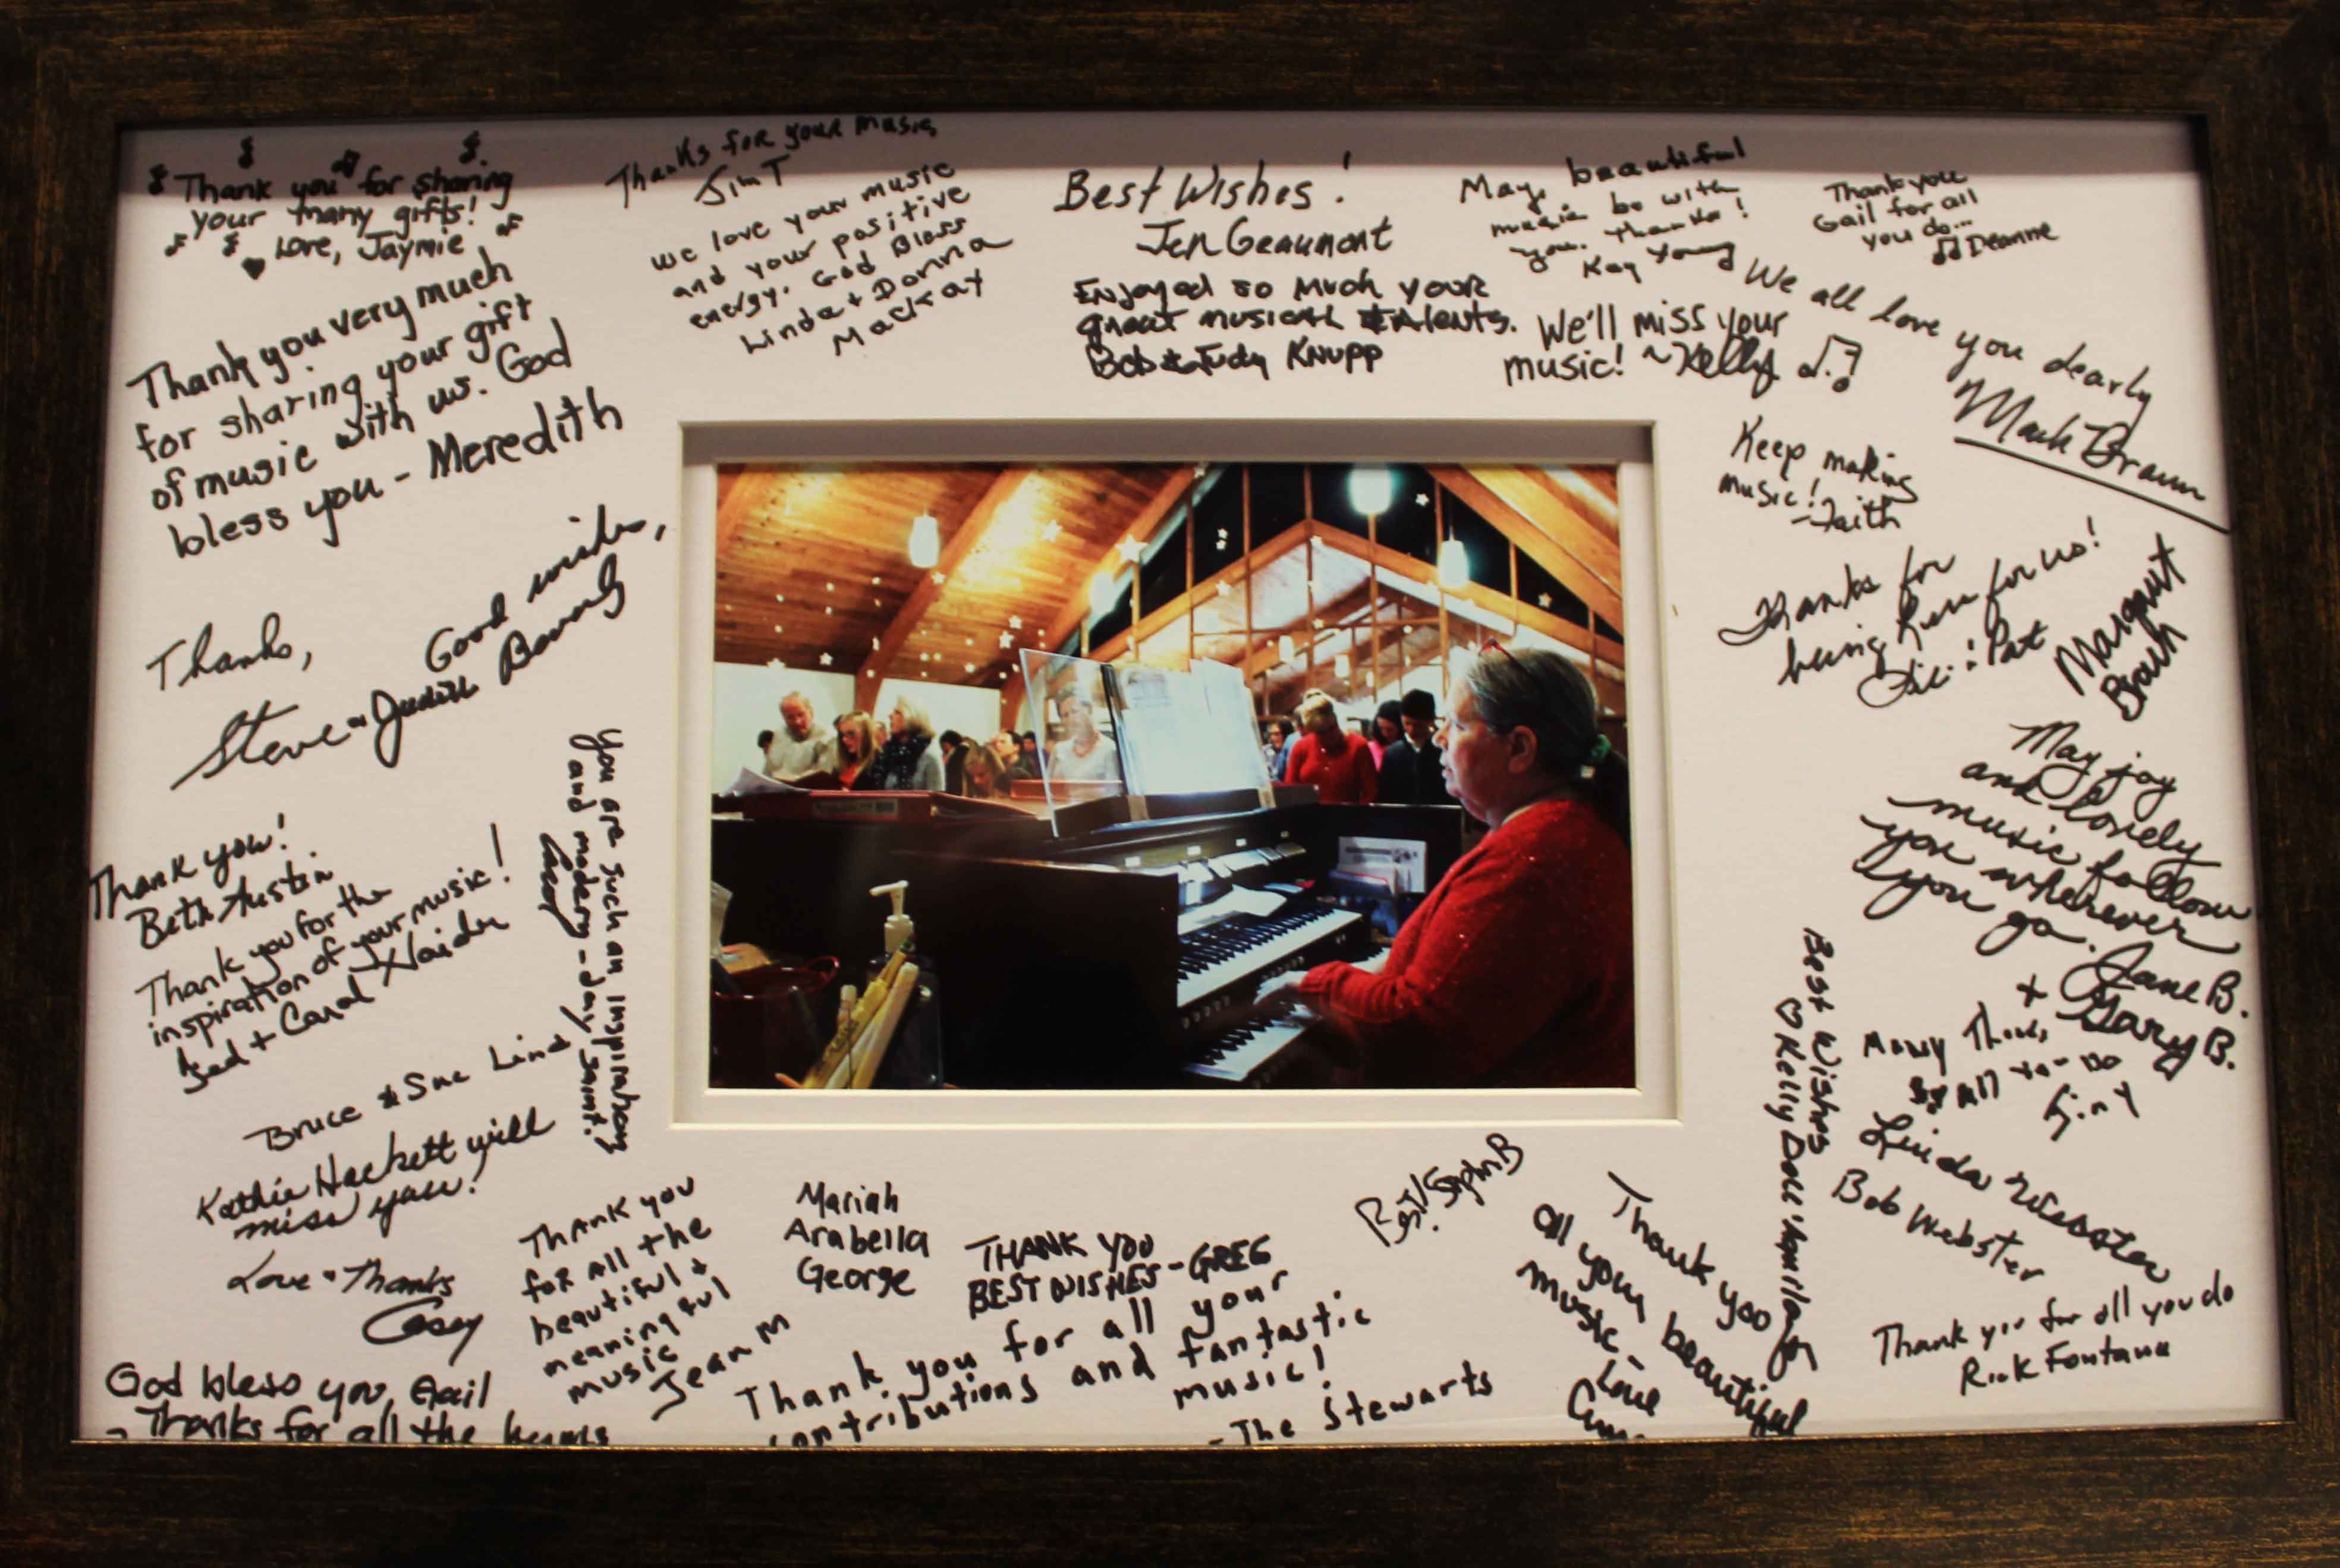 Thank you for sharing
your many gifts!
Love, Jaymie
Thank you very much
for sharing your gift
of music with us. God
bless you - Meredith
Thanks for your music
Jim T
We love your music
and your positive
energy. God Bless
Linda + Donna
Mackay
Best Wishes!
Jen Geaumont
Enjoyed so much your
great musical talents.
Bob & Judy Knupp
May beautiful
music be with
you. Thanks!
Kay Young
Thank you
Gail for all
you do...
Deanne
We'll miss your
music! ~Kelly
We all love you dearly
Mark Braun
Keep making
music!
-Faith
Thanks for
being here for us!
Pat
Margaret
Brash
Thanks,
Good wishes,
Steve & Judith
Thank you!
Beth Austin
Thank you for the
inspiration of your music!
+ Carol
You are such an inspiration
and modern-day saint.
Bruce & Sue Lind
Kathie Hackett will
miss you!
Love & Thanks
Casey
God bless you, Gail
- Thanks for all the hymns
Thank you
for all the
beautiful +
meaningful
music
Jean M
Mariah
Arabella
George
THANK YOU
BEST WISHES - GREG
Thank you for all your
contributions and fantastic
music!
-The Stewarts
Thank you
all your beautiful
music -
Love
Best Wishes
Kelly
May joy
and lovely
music follow
you wherever
you go.
Jane B.
+ Gary B.
Many Thanks
All
Linda Webster
Bob Webster
Thank you for all you do
Rick Fontana